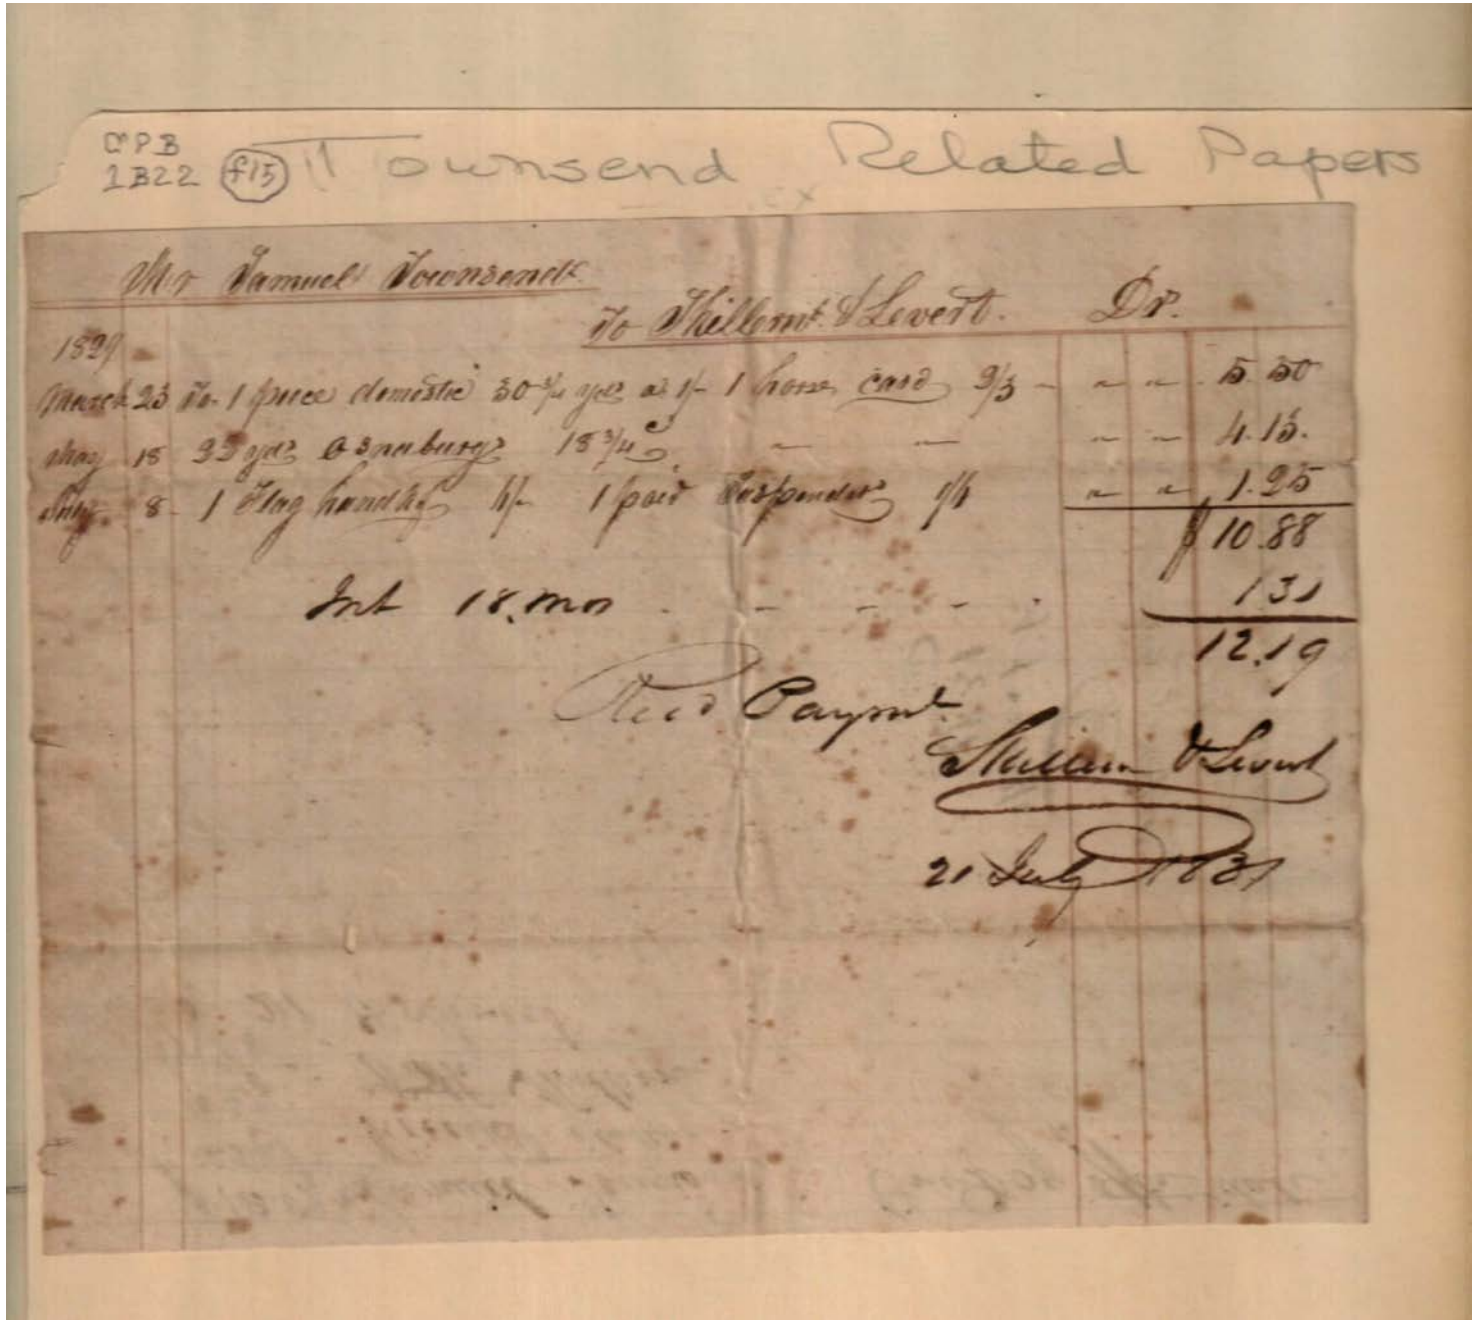 CPB
1B22 f15 Townsend Related Papers
Mr Samuel Townsend
To Skillern & Levert. Dr.
1829
March 23 To 1 piece domestic 30 3/4 yds at 1/- 1 horse card 2/3 - " " 5.50
May 18 yds Osnaburgs 18 3/4 c - - " " 4.13.
July 8 1 Flag handkf 1 pair Suspenders " " 1.25
$10.88
Int 18. mos - - - - 1.31
12.19
Recd Paymt.
Skillern & Levert
21 July 1831